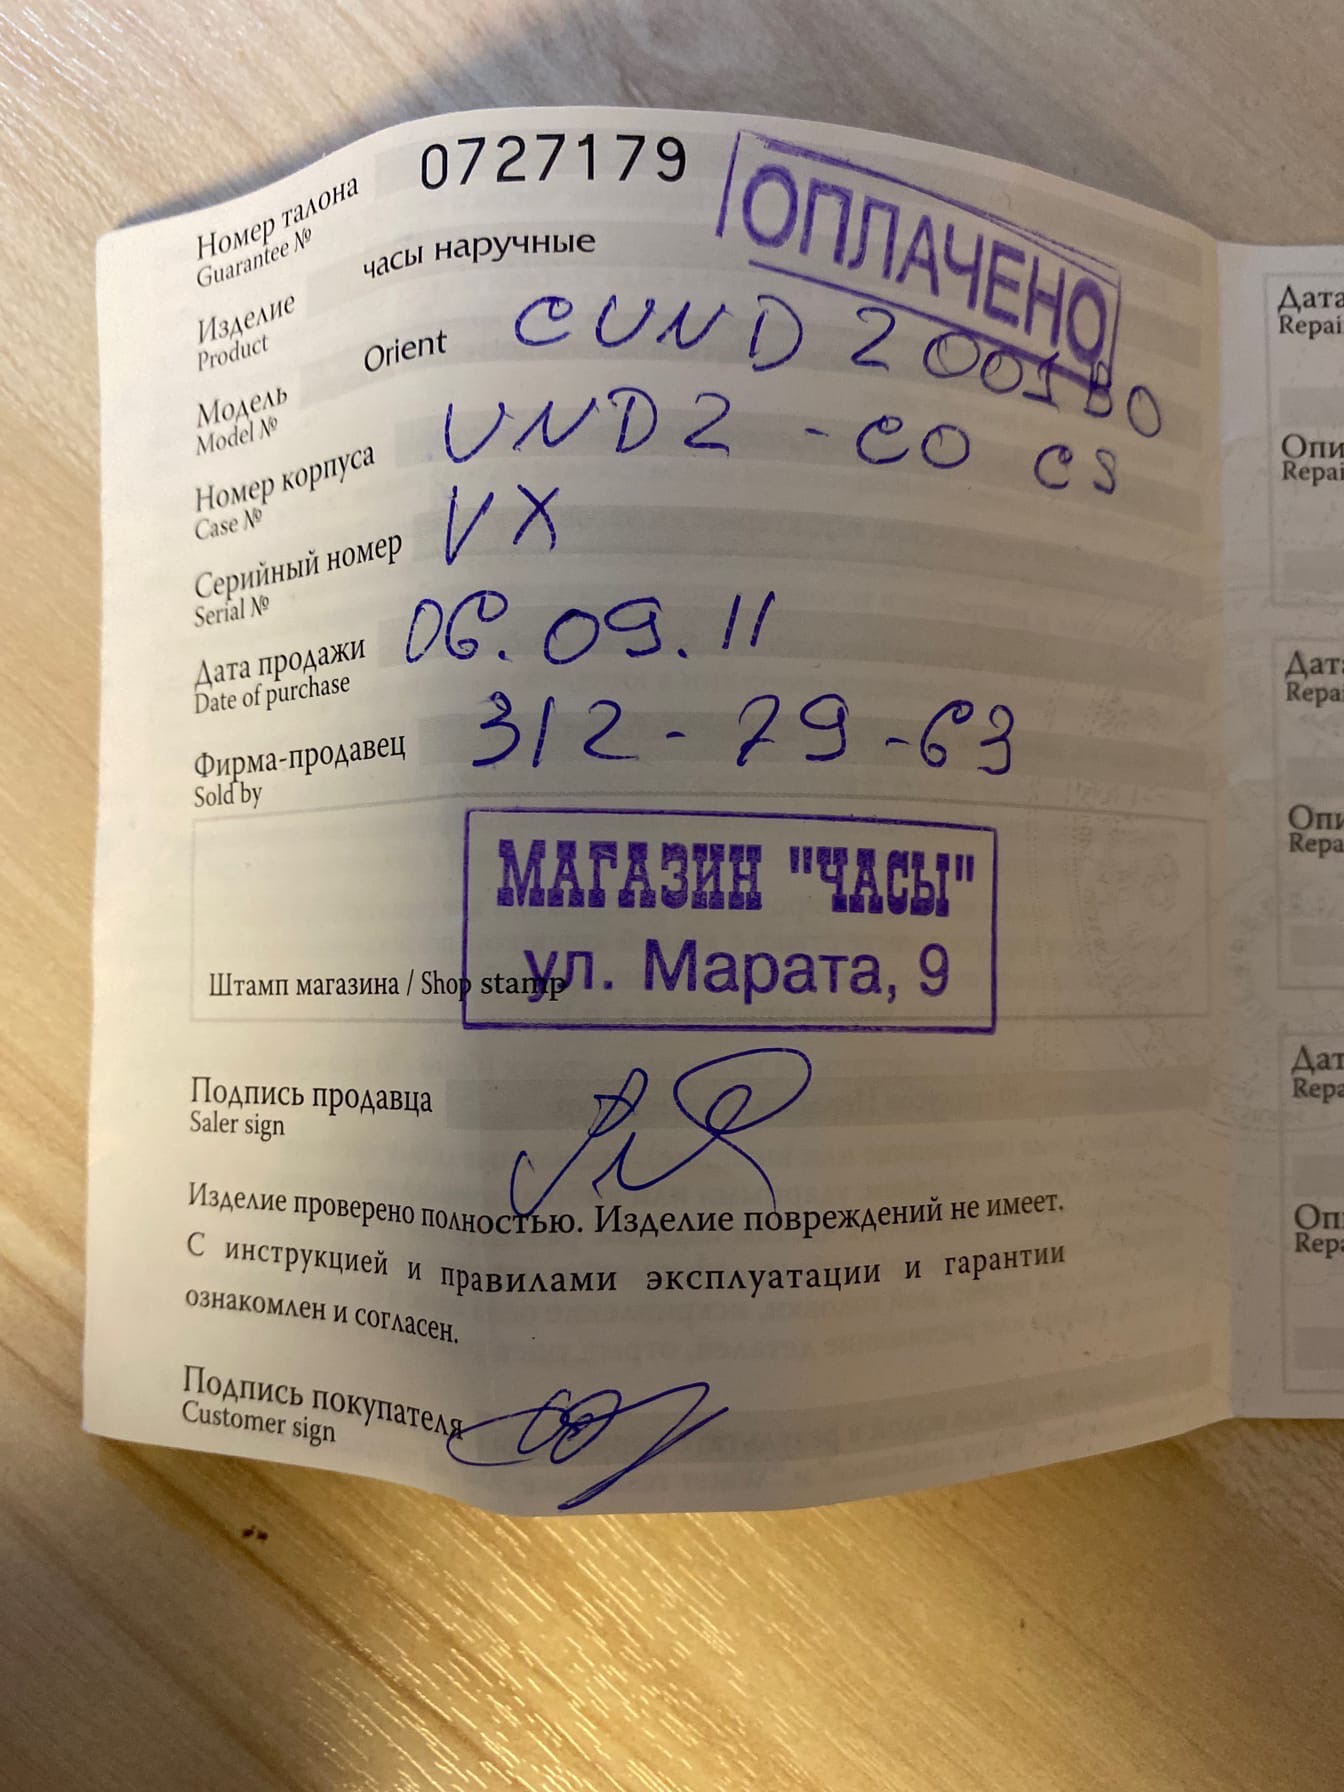 Номер талона 0727179
Guarantee №
ОПЛАЧЕНО
Изделие часы наручные
Product
Модель Orient CUND2001B0
Model №
Номер корпуса UND2 - CO CS
Case №
Серийный номер VX
Serial №
Дата продажи 06.09.11
Date of purchase
Фирма-продавец 312-79-63
Sold by
МАГАЗИН "ЧАСЫ"
ул. Марата, 9
Штамп магазина / Shop stamp
Подпись продавца
Saler sign
Изделие проверено полностью. Изделие повреждений не имеет.
С инструкцией и правилами эксплуатации и гарантии
ознакомлен и согласен.
Подпись покупателя
Customer sign
Дата
Repai
Опи
Repai
Дат
Repai
Опи
Repa
Дат
Repa
Оп
Repa